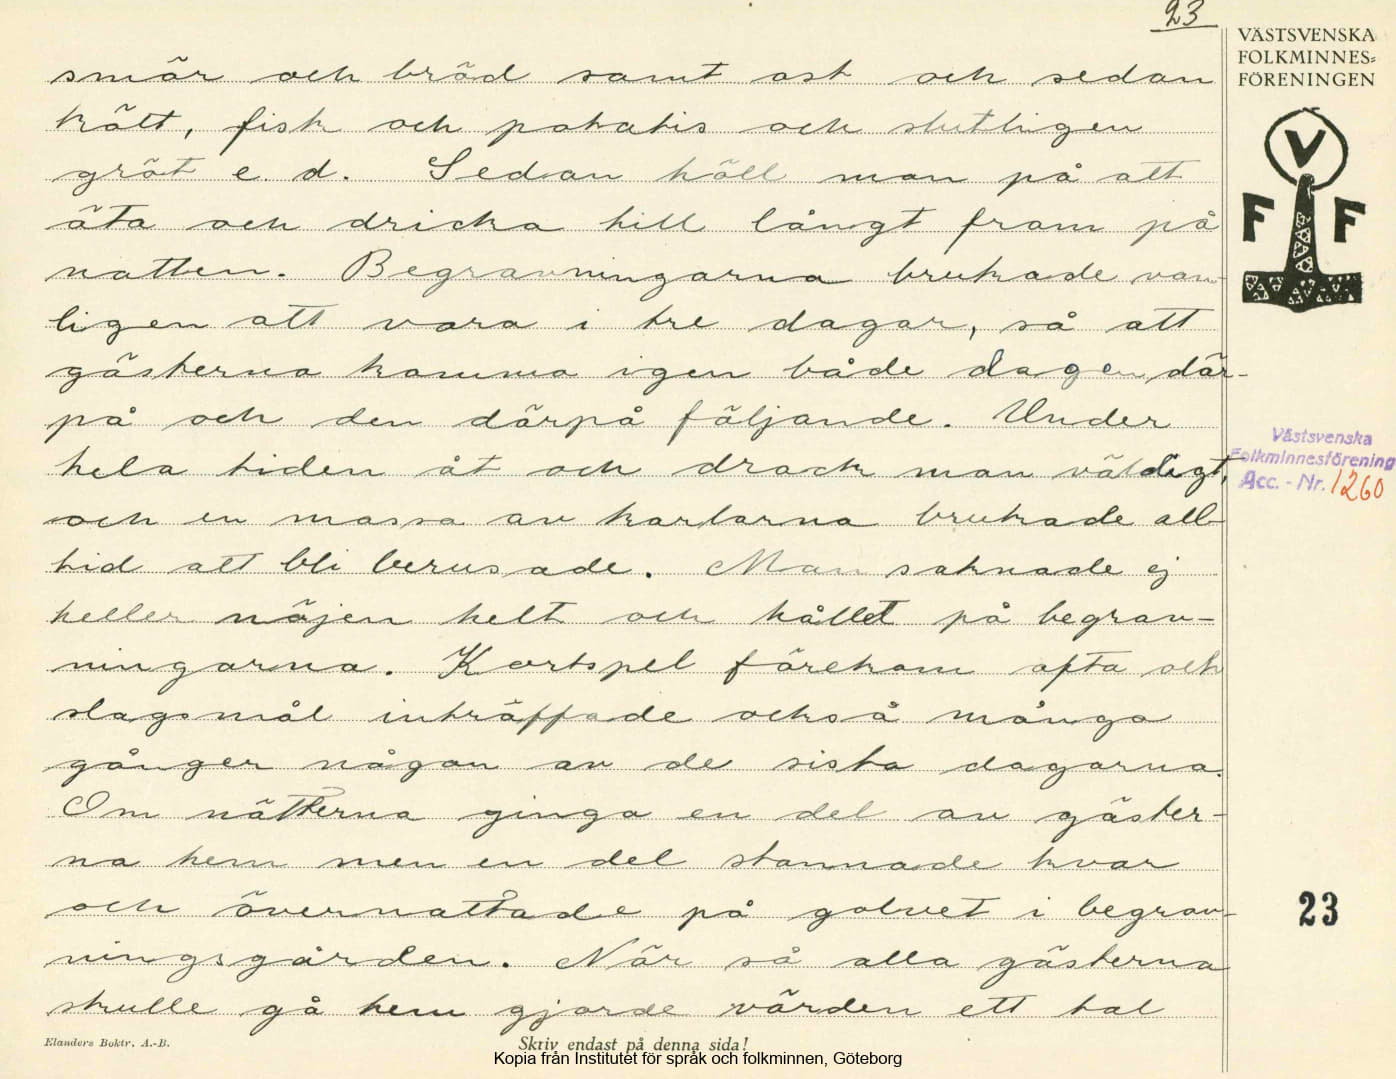 23
smör och bröd samt ost och sedan
kött, fisk och potatis och slutligen
gröt e. d. Sedan höll man på att
äta och dricka till långt fram på
natten. Begravningarna brukade van-
ligen att vara i tre dagar, så att
gästerna komma igen både dagen där-
på och den därpå följande. Under
hela tiden åt och drack man väldigt,
och en massa av karlarna brukade all-
tid att bli berusade. Man saknade ej
heller nöjen helt och hållet på begrav-
ningarna. Kortspel förekom ofta och
slagsmål inträffade också många
gånger någon av de sista dagarna.
Om nätterna ginga en del av gäster-
na hem men en del stannade kvar
och övernattade på golvet i begrav-
ningsgården. När så alla gästerna
skulle gå hem gjorde värden ett tal
VÄSTSVENSKA
FOLKMINNES-
FÖRENINGEN
V
F F
Västsvenska
Folkminnesförening
Acc. - Nr. 1260
23
Elanders Boktr. A.-B.
Skriv endast på denna sida!
Kopia från Institutet för språk och folkminnen, Göteborg